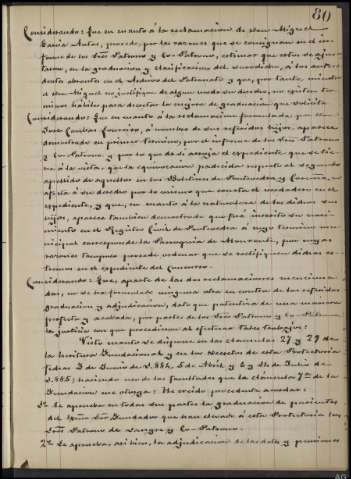 80
Considerando: que en cuanto á la reclamacion de Don Miguel
García Autas, procede, por las razones que se consignan en el in-
forme de los Sres Patrono y Co-Patrono, estimar que este se ajus-
taron, en la graduacion y clasificacion del á los ante-
obrantes en el Archivo del Patronato y que, por tanto, mientras
Don Miguel no justifique de algun modo su derecho, no existen tér-
minos hábiles para decretar la mejora de graduacion que solicita
Considerando: Que en cuanto á la reclamacion formulada por Don
José Casibar á nombre de sus referidos hijos, aparece
demostrado en primer término, por el informe de los Sres Patrono
y Co-Patrono y por lo que de sí arroja el expediente que se tie-
ne á la vista, que la equivocacion padecida respecto al segundo
apellido de aquellos en los Boletines de Pontevedra y Coruña no
afecta á su derecho por lo mismo que consta el verdadero en el
expediente, y que, en cuanto á la naturaleza de los dichos sus
hijos, aparece tambien demostrado que fué inscrito su naci-
miento en el Registro Civil de Pontevedra á cuyo término mu-
nicipal corresponde la Parroquia de Mourente, por cuyas
razones tampoco procede ordenar que se rectifiquen dichos es-
tremos en el expediente del Concurso.
Considerando: Que, aparte de las dos reclamaciones menciona-
das, no se ha formulado ninguna otra en contra de las referidas
graduacion y adjudicacion, dato que patentiza de una manera
perfecta y acabada, por parte de los Sres Patrono y Co-Patrono
la justicia con que procedieron al efectuar tales trabajos:
Visto cuanto se dispone en las cláusulas 27 y 29 de
la Escritura Fundacional y en los Decretos de esta Protectoria
fechas 3 de Junio de 1.884, 5 de Abril y 6 y 21 de Julio de
1.885; haciendo uso de las facultades que la cláusula 7ª de la
Fundacion me otorga: He venido procedente acordar:
1º Se aprueba en todas sus partes la graduacion de parientes
del Excmo Sr Fundador que han elevado á esta Protectoria los
Sres Patrono de Sangre y Co-Patrono.
2º Se aprueba, asi bien, la adjudicacion de las dotes y pensiones